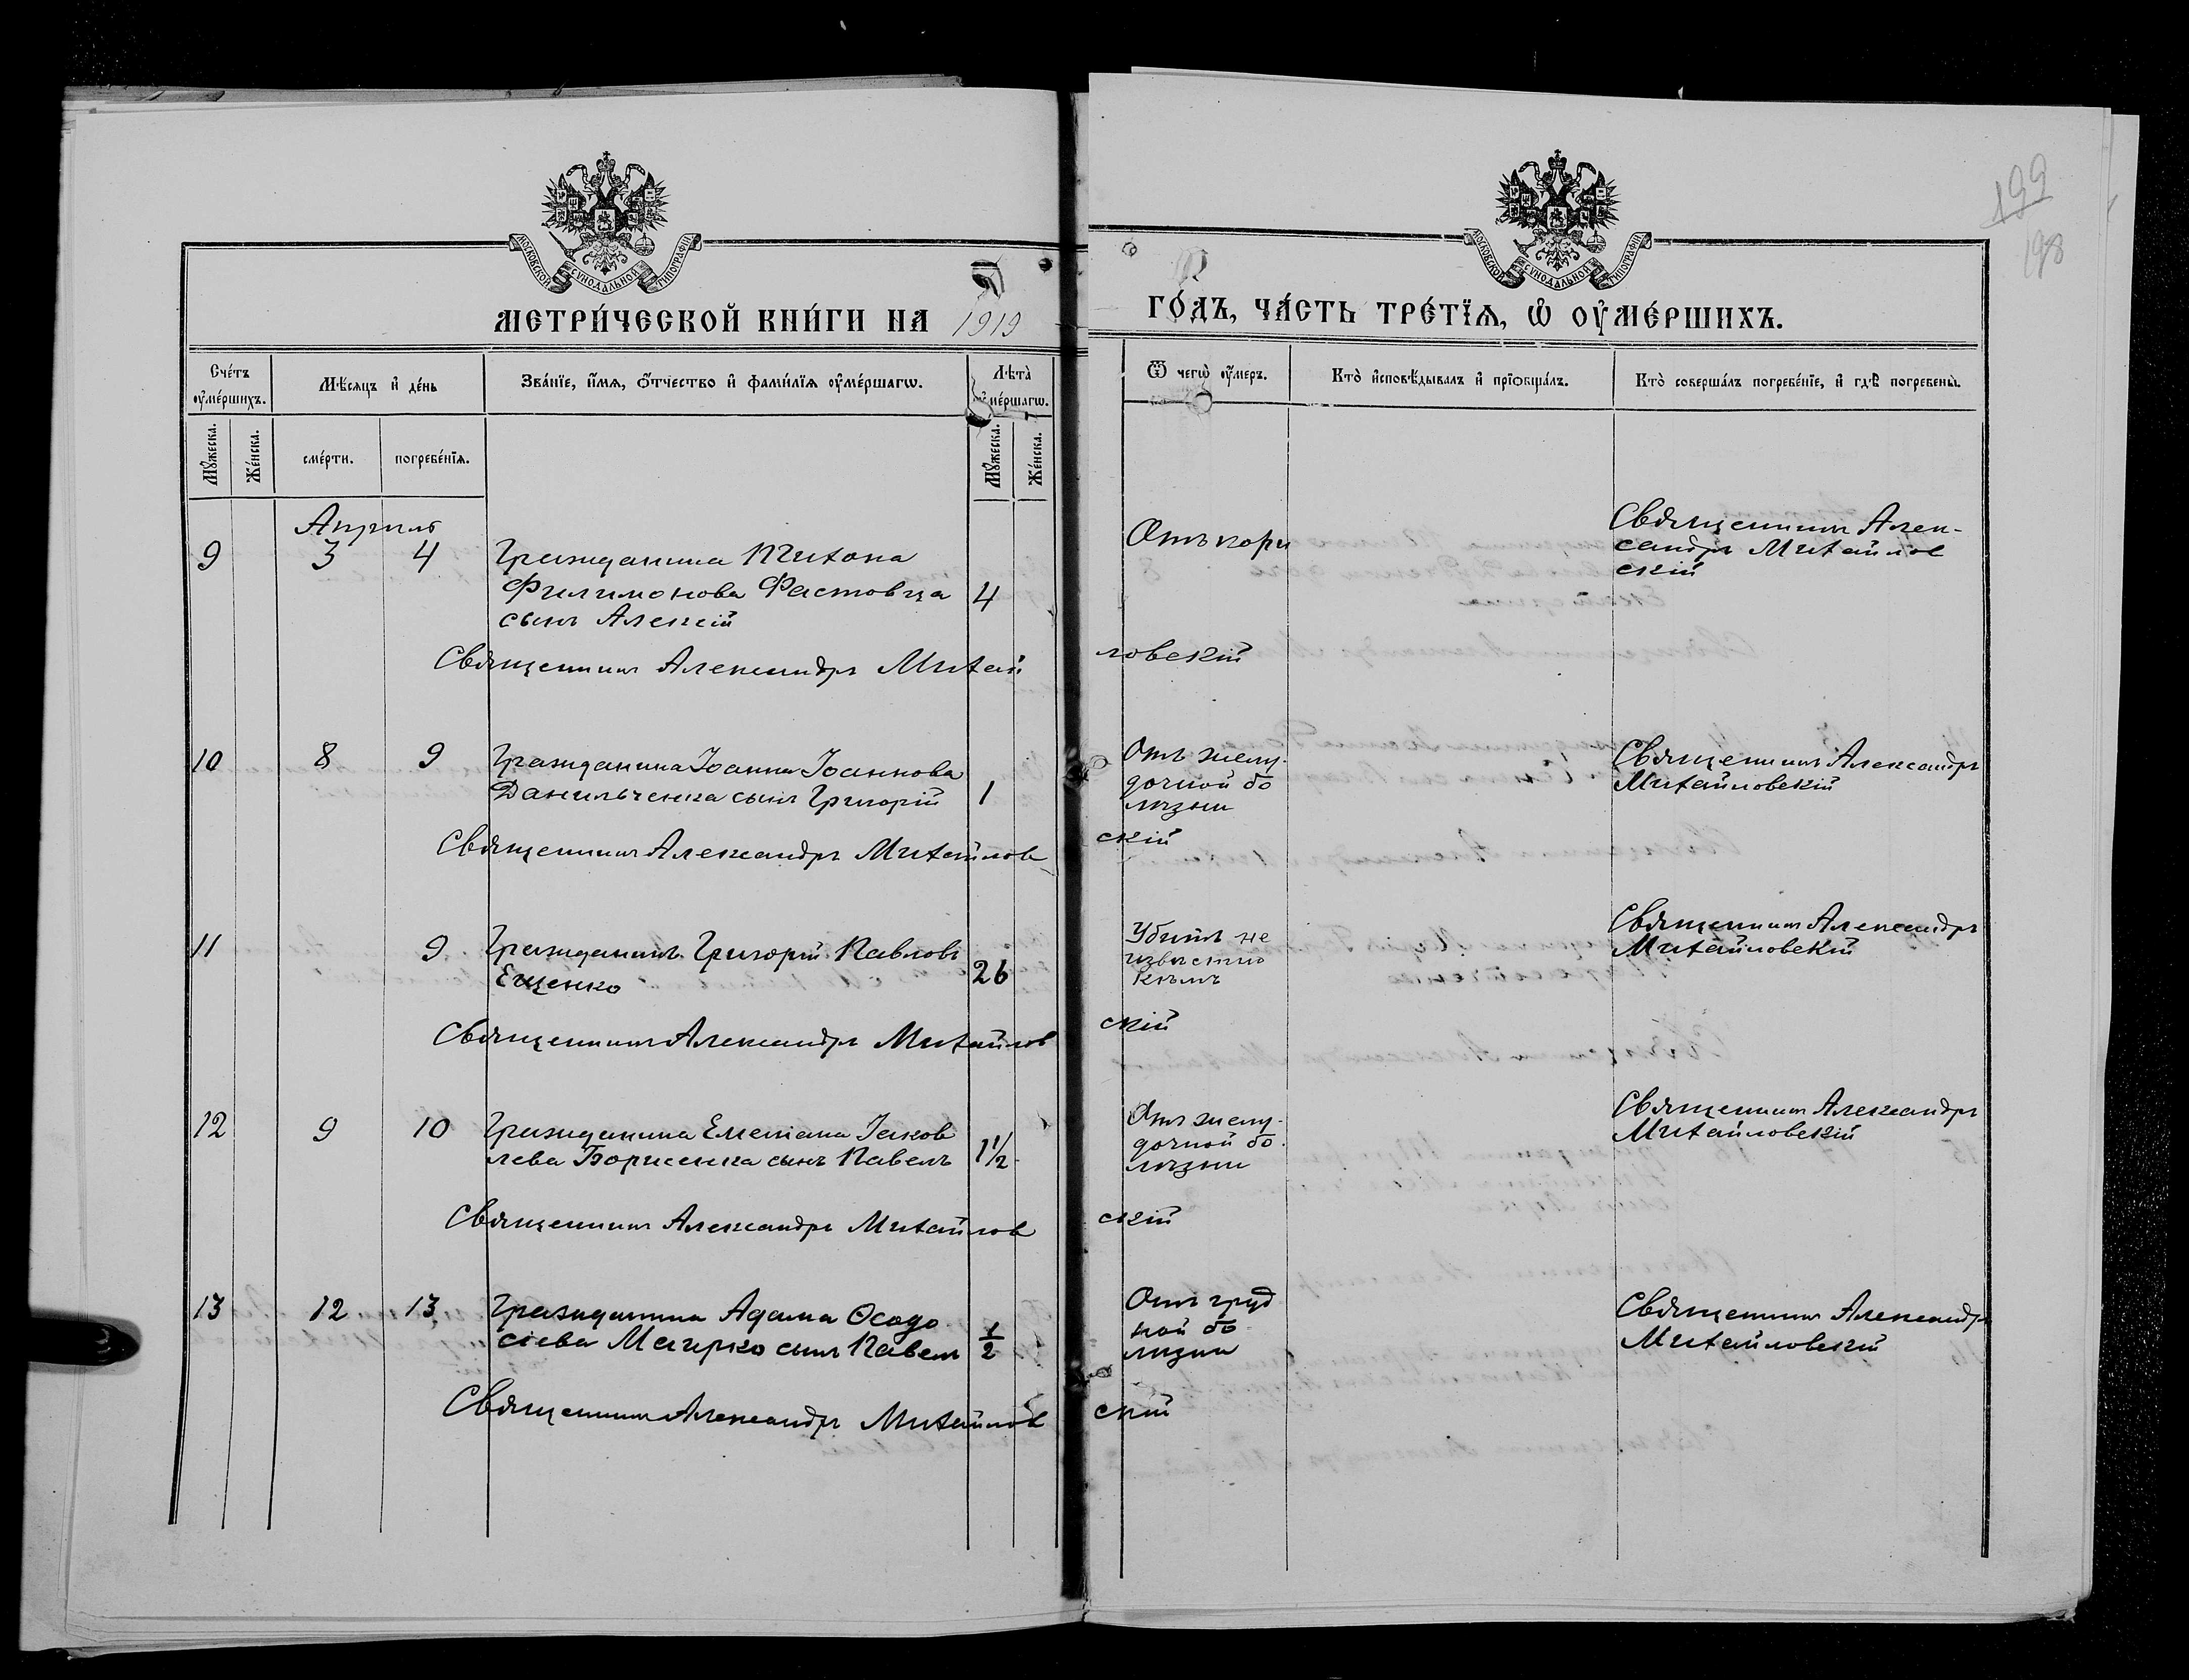 199
198
МОСКОВСКОЙ СѴНОДАЛЬНОЙ ТИПОГРАФІИ
МОСКОВСКОЙ СѴНОДАЛЬНОЙ ТИПОГРАФІИ
МЕТРИ́ЧЕСКОЙ КНИ́ГИ НА 1919
ГО́ДЪ, ЧА́СТЬ ТРЕ́ТЇѦ, Ѽ ОУ҆МЕ́РШИХЪ.
Сче́тъ оу҆ме́ршихъ.
Мѣ́сяцъ и҆ де́нь
Зва́нїе, и҆́мѧ, ѻ҆́тчество и҆ фами́лїѧ оу҆ме́ршагѡ.
Лѣ́та оу҆ме́ршагѡ.
Ѿ чегѡ̀ оу҆́меръ.
Кто̀ и҆сповѣ́дывалъ и҆ прїѡбща́лъ.
Кто̀ соверша́лъ погребе́нїе, и҆ гдѣ̀ погребены̀.
Мꙋ́жеска.
Же́нска.
сме́рти.
погребе́нїѧ.
Мꙋ́жеска.
Же́нска.
Апрѣль
9 3 4 Гражданина Тихона
Филимонова Фастовца 4
сынъ Алексій
Отъ кори
Священникъ Алек-
сандръ Михайлов
скій
Священникъ Александръ Михай
ловскій
10 8 9 Гражданина Іоанна Іоаннова
Данильченка сынъ Григорій 1
Отъ желу-
дочной бо
лѣзни
Священникъ Александръ
Михайловскій
Священникъ Александръ Михайлов
скій
11 9 Гражданинъ Григорій Павловъ
Ещенко 26
Убитъ не
извѣстно
кѣмъ
Священникъ Александръ
Михайловскій
Священникъ Александръ Михайлов
скій
12 9 10 Гражданина Емеліана Іаков
лева Борисенка сынъ Павелъ 1 1/2
Отъ желу-
дочной бо-
лѣзни
Священникъ Александръ
Михайловскій
Священникъ Александръ Михайлов
скій
13 12 13 Гражданина Адама Ѳеодо
сіева Магирко сынъ Павелъ 1/2
Отъ груд
ной бо
лѣзни
Священникъ Александръ
Михайловскій
Священникъ Александръ Михайлов
скій